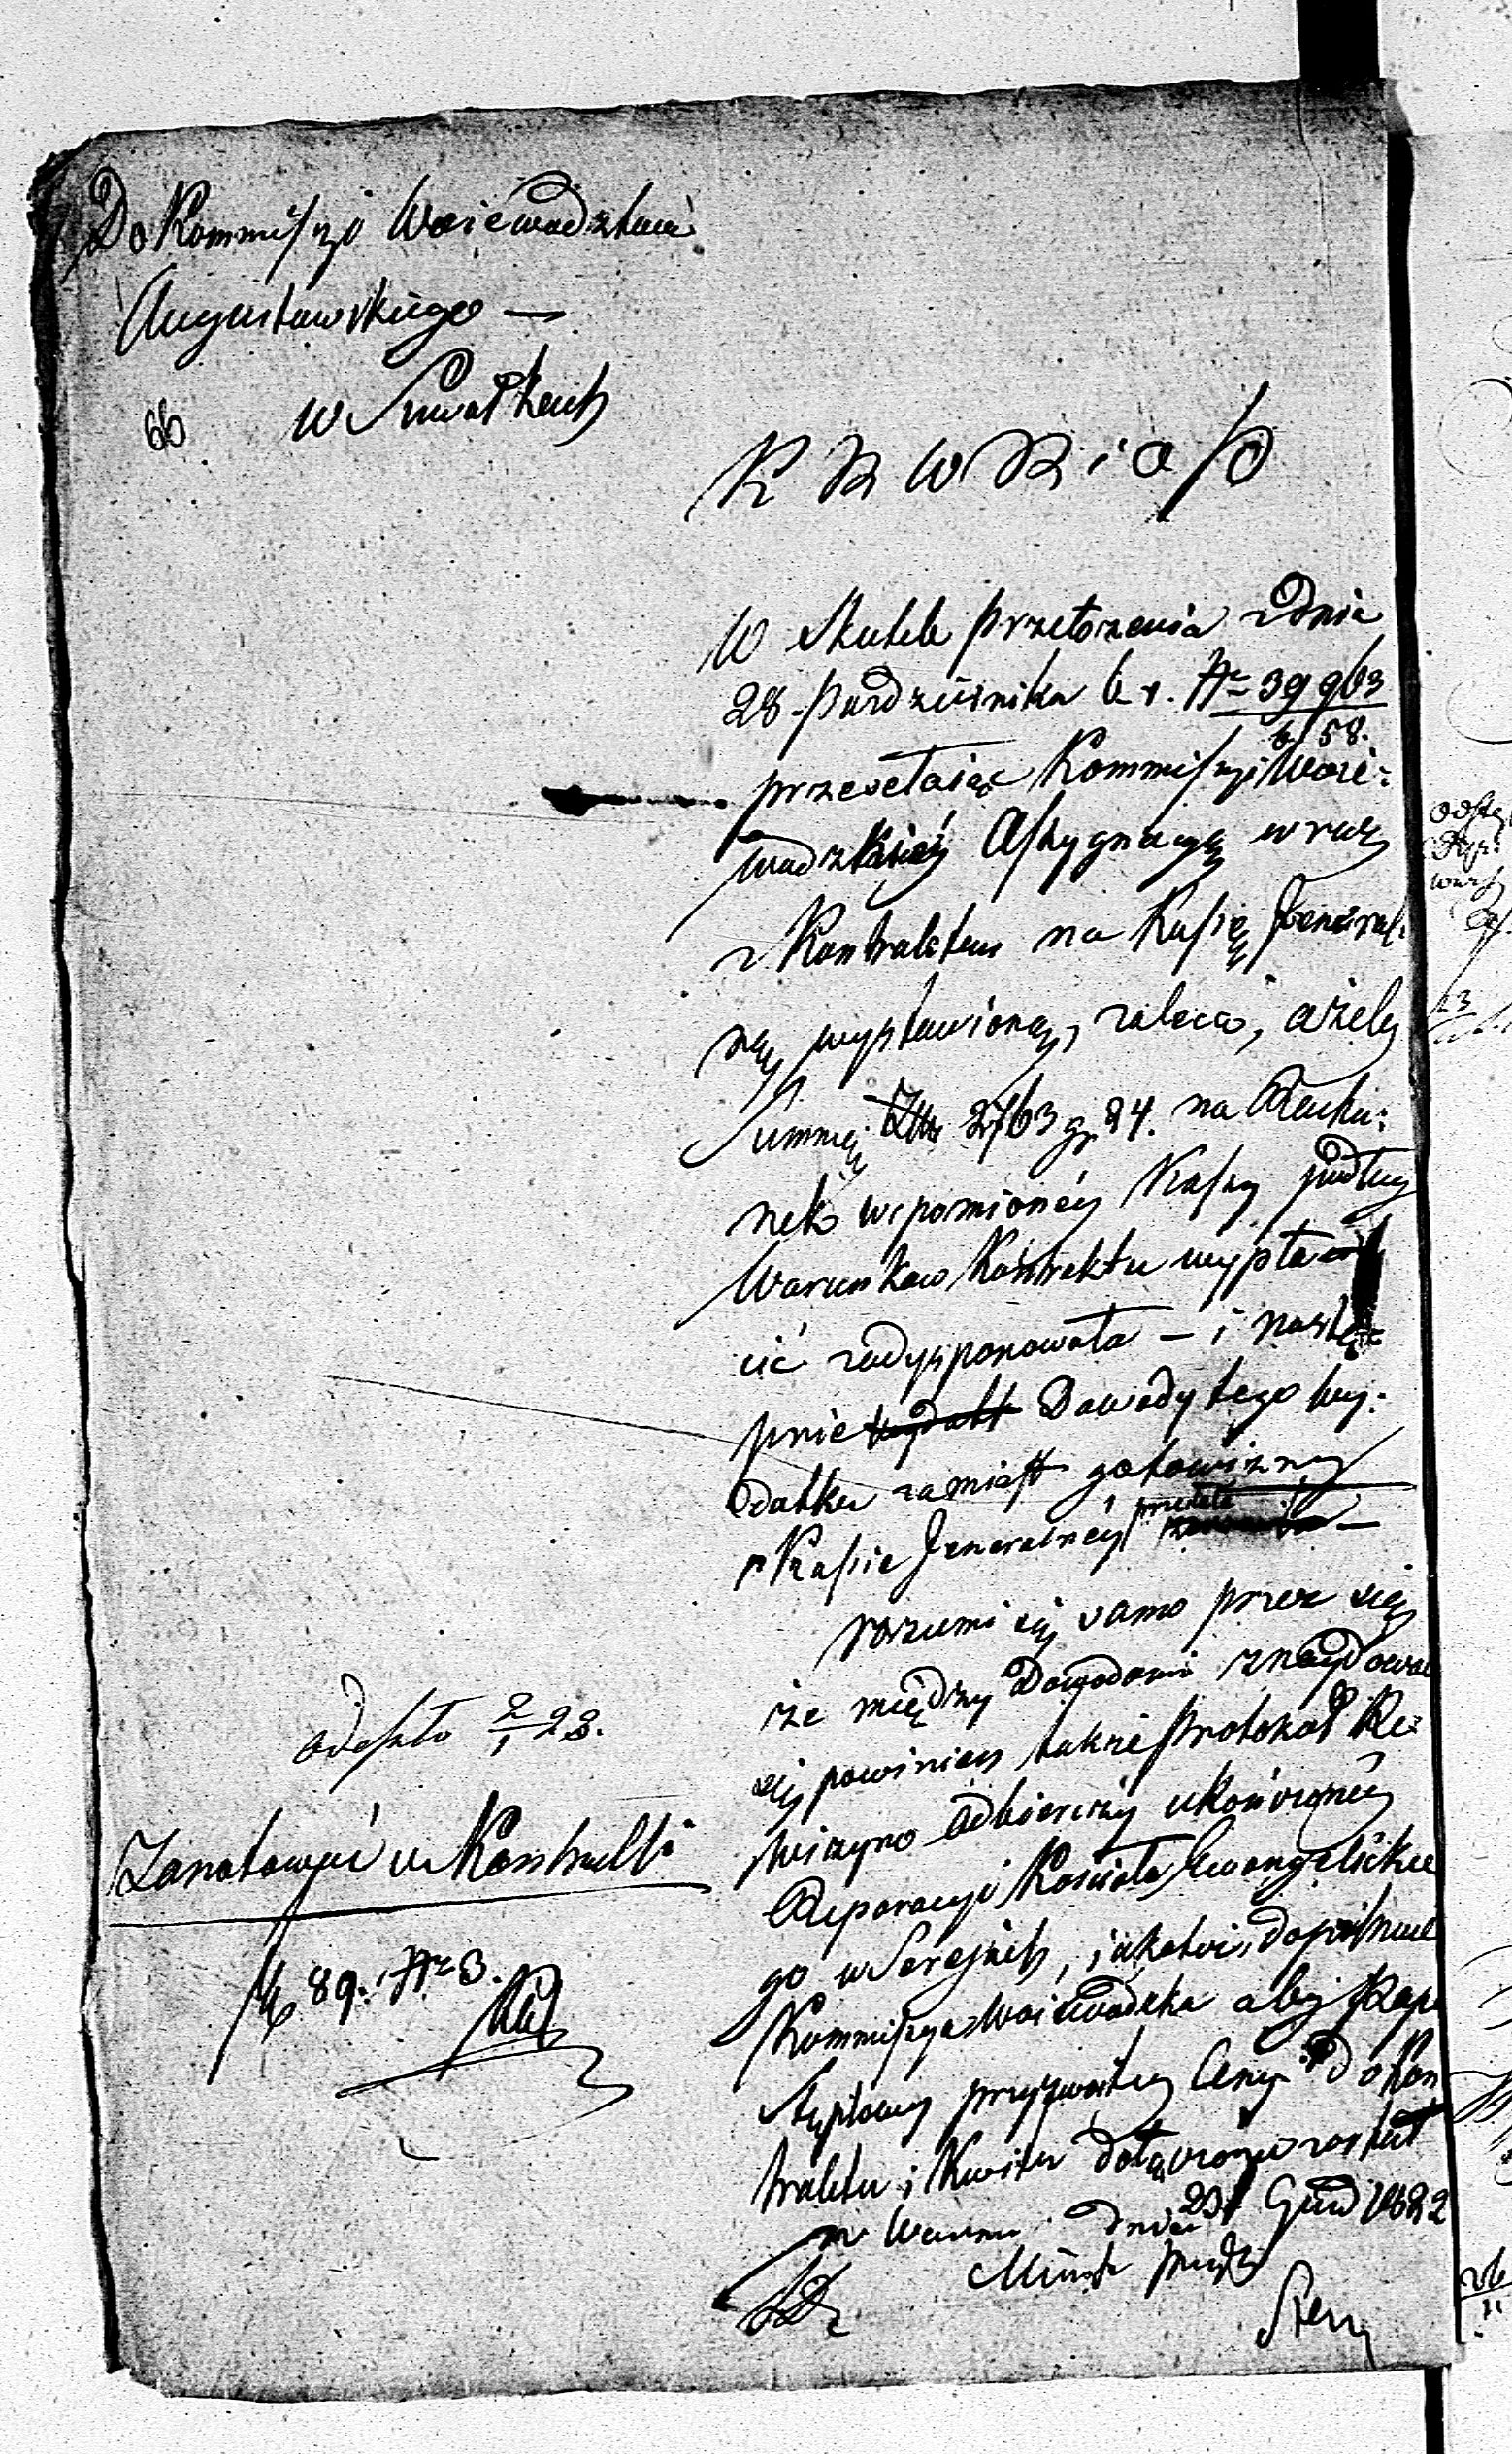 Do Kommissyi Woiewodztwa
Augustowskiego —
66 w Suwałkach
K R W R i O P
W skutek przełożenia z dnia
28. Października b. r. Nr 39963
58.
przesełaiąc Kommissyi Woie:
wodzkiey Assygnacyą wraz
z Kontraktem na Kassę General:
ną wystawioną, zaleca, ażeby
Summę Złt 2763 gr 24. na Rachu:
nek wspomnioney Kassy podług
Warunkow Kontraktu wypła
cić zadysponowała — i nastę
pnie Dowody tego wy:
datku zamiast gotowizny
Kassie Jeneralney przesłała
rozumi się samo przez się
że między Dowodami znaydować
się powinien także Protokoł Re:
wizyino Odbierczy ukończoney
Reparacyi Kościoła Ewangelickie
go w Serejach, iakoteż dopilnuie
Kommissya Woiewodzka aby Papi
Stęplowy przyzwoitey Ceny do Kon
traktu i Kwitu dołączony został
w Warsza dnia 23 Grud 1822
Minist Prezyd
odeszło 2/1 23.
Zanotować w Kontrolli
89. Nr 3.